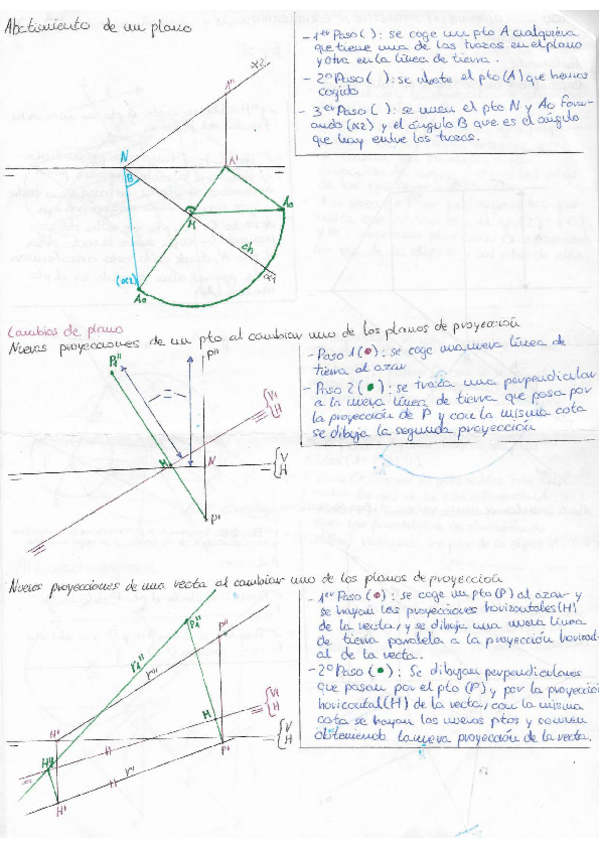 Abatimiento de un plano
- 1er Paso ( ): se coge un pto A cualquiera
que tiene una de las trazas en el plano
y otra en la línea de tierra.
- 2º Paso ( ): se abate el pto (A) que hemos
cogido
- 3er Paso ( ): se unen el pto N y A0 form-
ando (α2) y el ángulo B que es el ángulo
que hay entre las trazas.
α2
A''
N
B
A'
A0
M
Ch
α1
(α2)
A0
Cambios de plano
Nuevas proyecciones de un pto al cambiar uno de los planos de proyección
P1''
P''
=
V1
H
M
N
V
H
P'
- Paso 1 (●): se coge una nueva línea de
tierra al azar
- Paso 2 (●): se traza una perpendicular
a la nueva línea de tierra que pasa por
la proyección de P y con la misma cota
se dibuja la segunda proyección
Nuevas proyecciones de una recta al cambiar uno de los planos de proyección
P1''
P''
r1''
r''
V1
H
M
V
H
H''
P'
r'
H'
- 1er Paso (●): se coge un pto (P) al azar y
se hayan las proyecciones horizontales (H)
de la recta, y se dibuja una nueva línea
de tierra paralela a la proyección horizont-
al de la recta.
- 2º Paso (●): Se dibujan perpendiculares
que pasan por el pto (P) y por la proyección
horizontal (H) de la recta, con la misma
cota se hayan los nuevos ptos y se unen
obteniendo la nueva proyección de la recta.